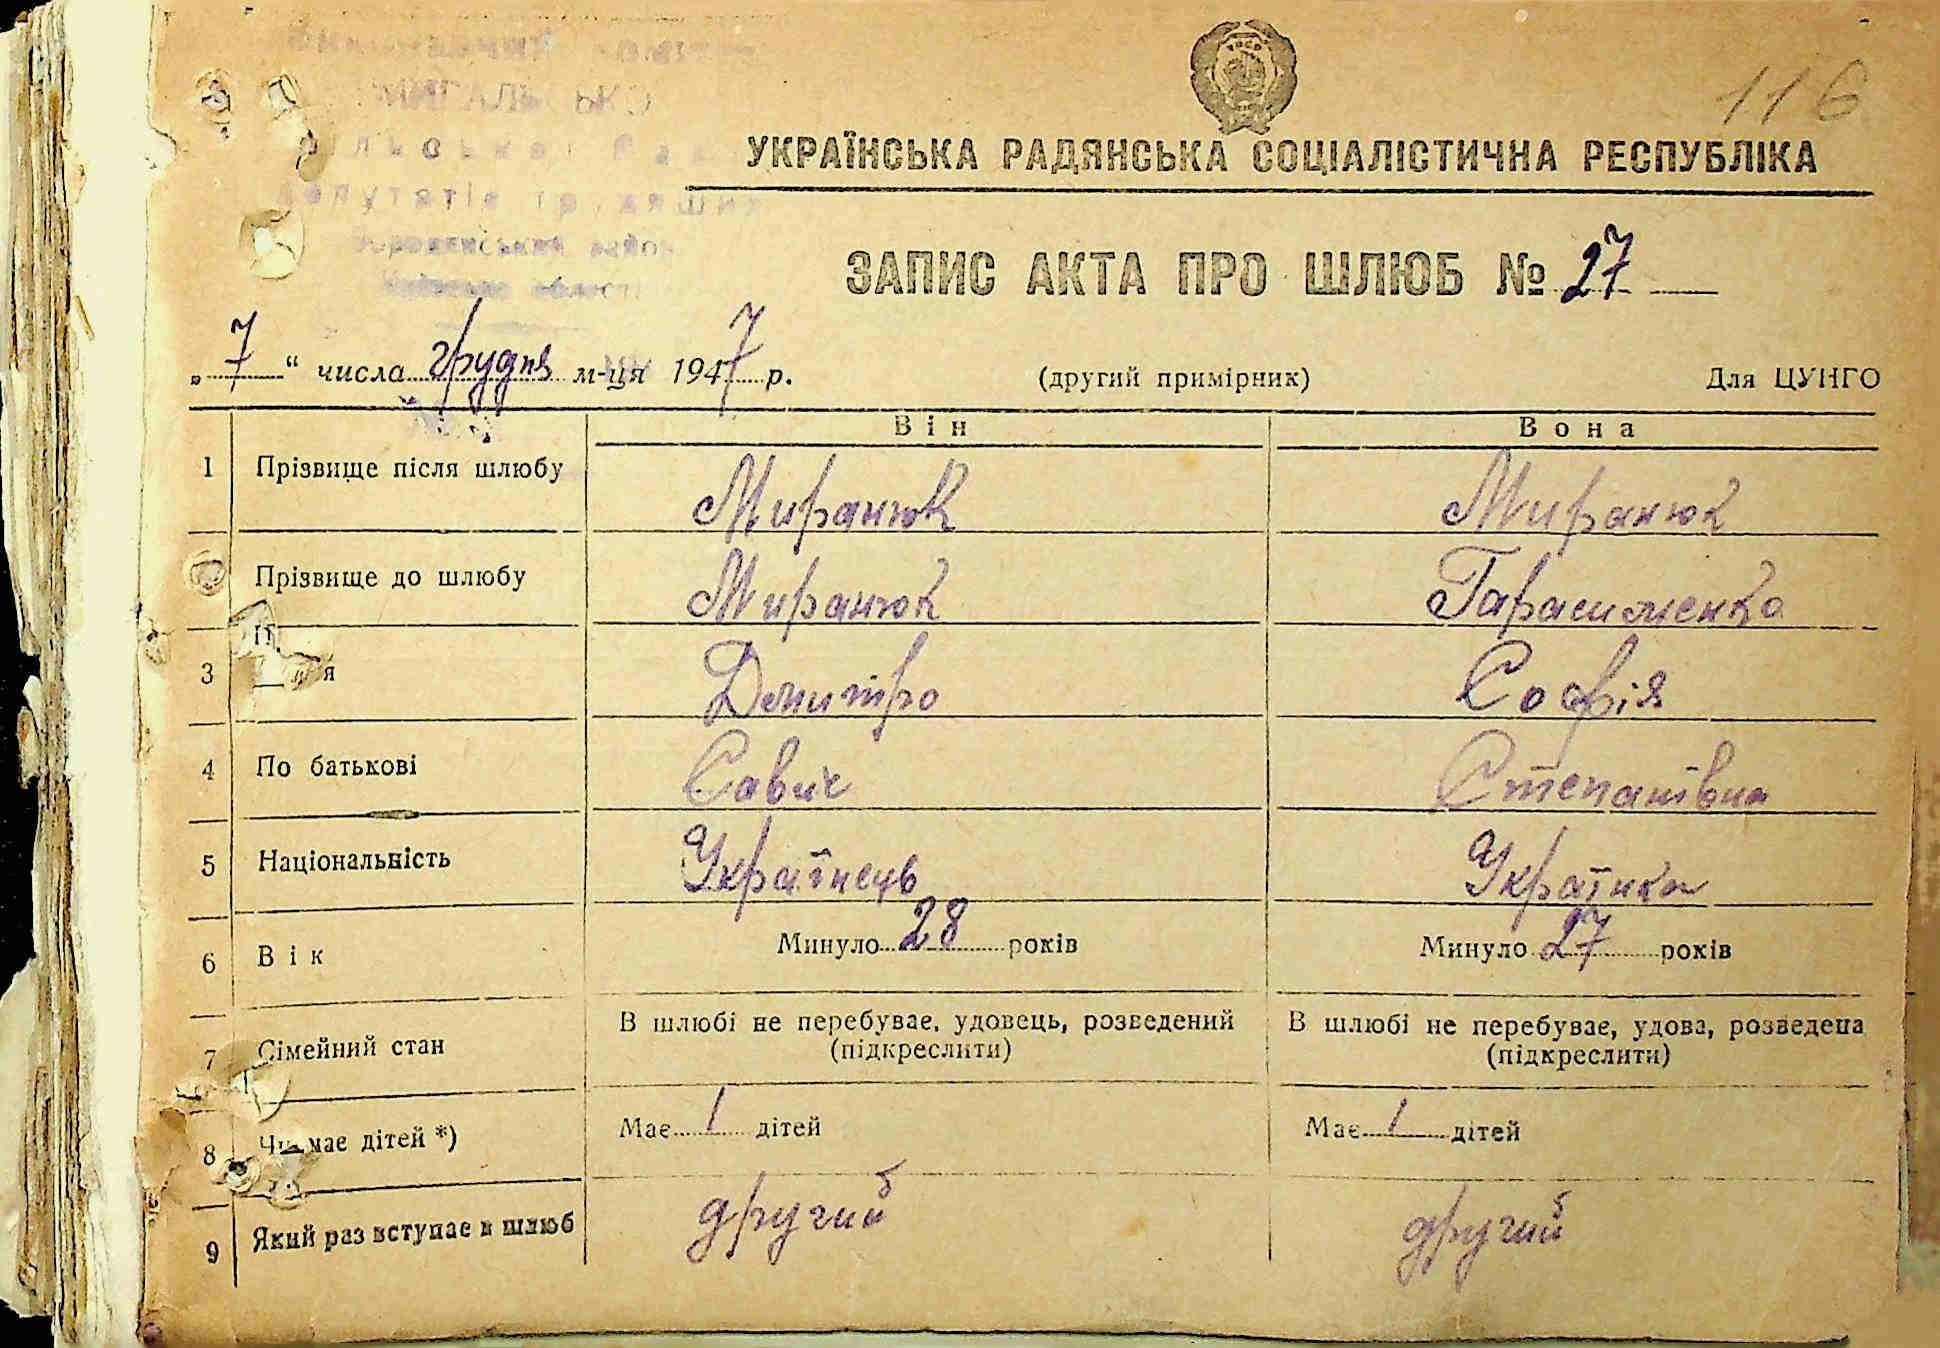 116
УКРАЇНСЬКА РАДЯНСЬКА СОЦІАЛІСТИЧНА РЕСПУБЛІКА
депутатів трудящих
Бородянський район
ЗАПИС АКТА ПРО ШЛЮБ № 27
„7“ числа грудня м-ця 1947 р. (другий примірник) Для ЦУНГО
Він Вона
1 Прізвище після шлюбу Миранюк Миранюк
Прізвище до шлюбу Миранюк Гарасименко
3 Дмитро Софія
4 По батькові Савич Степанівна
5 Національність Українець Українка
6 Вік Минуло 28 років Минуло 27 років
7 Сімейний стан В шлюбі не перебуває, удовець, розведений (підкреслити) В шлюбі не перебуває, удова, розведена (підкреслити)
8 Чи має дітей *) Має 1 дітей Має 1 дітей
9 Який раз вступає в шлюб другий другий